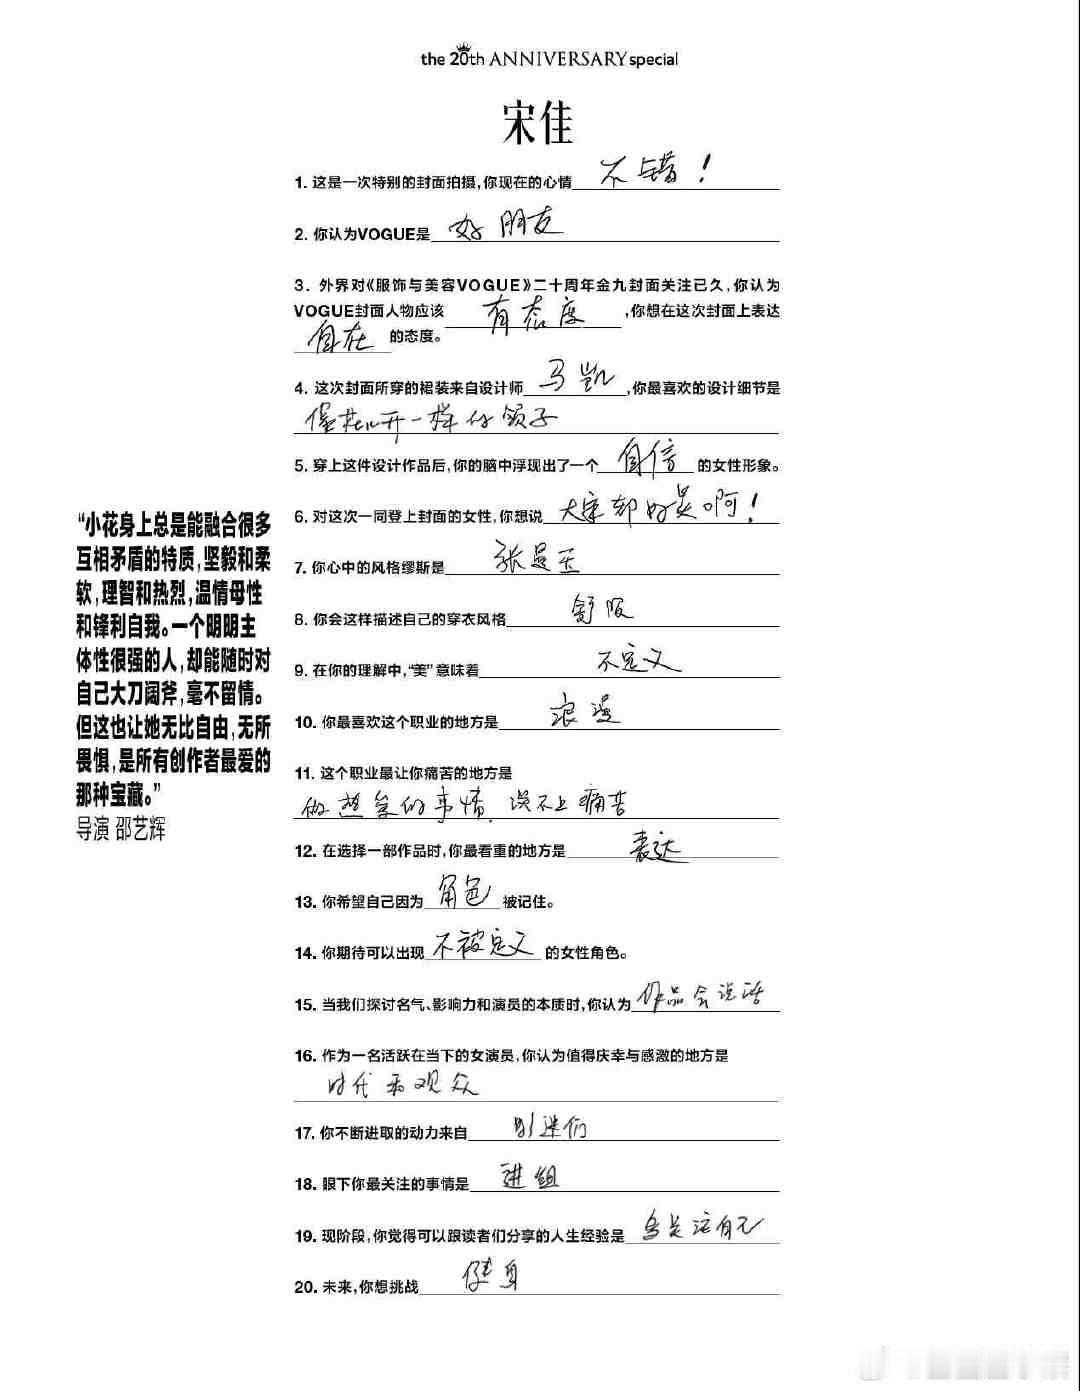 the 20th ANNIVERSARY special
宋佳
1. 这是一次特别的封面拍摄,你现在的心情 不错！
2. 你认为VOGUE是 好朋友
3. 外界对《服饰与美容VOGUE》二十周年金九封面关注已久,你认为
VOGUE封面人物应该 有态度 ,你想在这次封面上表达
自在 的态度。
4. 这次封面所穿的裙装来自设计师 马凯 ,你最喜欢的设计细节是
像花儿开一样的领子
5. 穿上这件设计作品后,你的脑中浮现出了一个 自信 的女性形象。
6. 对这次一同登上封面的女性,你想说 大家都好美啊！
7. 你心中的风格缪斯是 张曼玉
8. 你会这样描述自己的穿衣风格 舒服
9. 在你的理解中,“美”意味着 不定义
10. 你最喜欢这个职业的地方是 浪漫
11. 这个职业最让你痛苦的地方是
做想做的事情,谈不上痛苦
12. 在选择一部作品时,你最看重的地方是 表达
13. 你希望自己因为 角色 被记住。
14. 你期待可以出现 不被定义 的女性角色。
15. 当我们探讨名气、影响力和演员的本质时,你认为 作品会说话
16. 作为一名活跃在当下的女演员,你认为值得庆幸与感激的地方是
时代和观众
17. 你不断进取的动力来自 影迷们
18. 眼下你最关注的事情是 进组
19. 现阶段,你觉得可以跟读者们分享的人生经验是
20. 未来,你想挑战 健身
“小花身上总是能融合很多
互相矛盾的特质,坚毅和柔
软,理智和热烈,温情母性
和锋利自我。一个明明主
体性很强的人,却能随时对
自己大刀阔斧,毫不留情。
但这也让她无比自由,无所
畏惧,是所有创作者最爱的
那种宝藏。”
导演 邵艺辉